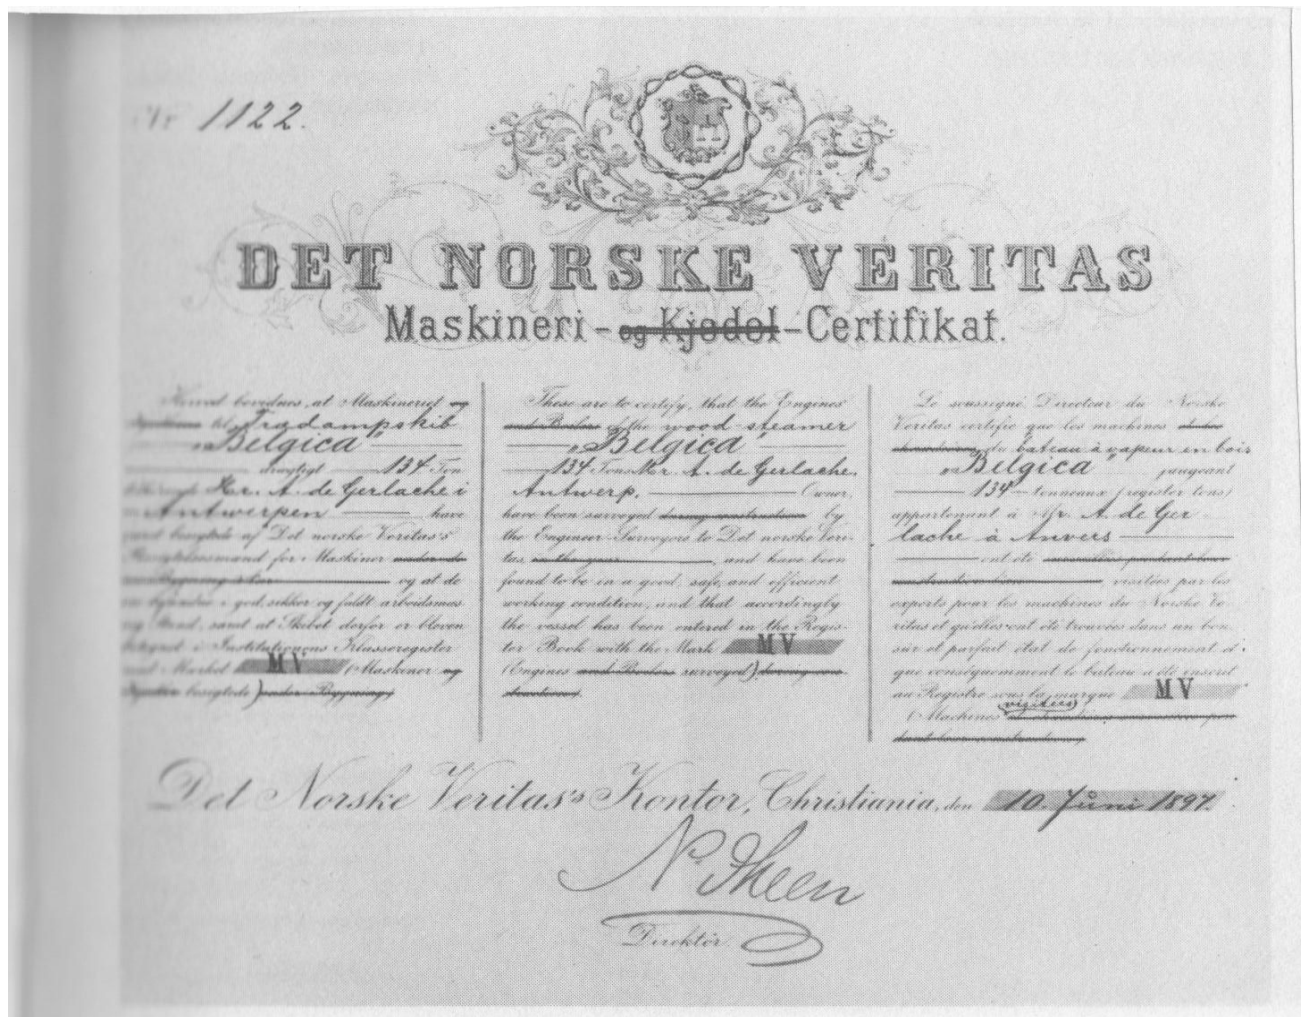 Nr 1122.
DET NORSKE VERITAS
Maskineri- og Kjedel -Certifikat.
Herved bevidnes, at Maskineriet og
til Trædampskib
"Belgica"
drægtigt 134 Ton
Hr. A. de Gerlache i
Antwerpen have
været besigtet af Det norske Veritas's
for Maskiner under de
Bygning og at de
i god, sikker og fuldt arbeidsmæs
Stand, samt at Skibet derfor er bleven
i Institutionens Klasseregister
med Mærket MV (Maskiner og
besigtede) under Bygning)
These are to certify, that the Engines
and Boilers of the wood-steamer
"Belgica"
134 Tons Mr. A. de Gerlache,
Antwerp. Owner,
have been surveyed during construction by
the Engineer Surveyors to Det norske Veri-
tas in the year and have been
found to be in a good, safe, and efficient
working condition, and that accordingly
the vessel has been entered in the Regis-
ter Book with the Mark MV
(Engines and Boilers surveyed)
Le soussigné, Directeur du Norske
Veritas certifie que les machines
du bateau à vapeur en bois
"Belgica" jaugeant
134 tonneaux (register tons)
appartenant à Mr. A. de Ger-
lache à Anvers
ont été
visitées par les
experts pour les machines du Norske Ve-
ritas et qu'elles ont été trouvées dans un bon
sûr et parfait état de fonctionnement et
que conséquemment le bateau a été inscrit
au Registre sous la marque MV
(Machines visitées)
Det Norske Veritas's Kontor, Christiania, den 10. Juni 1897.
N. Skeen
Direktör